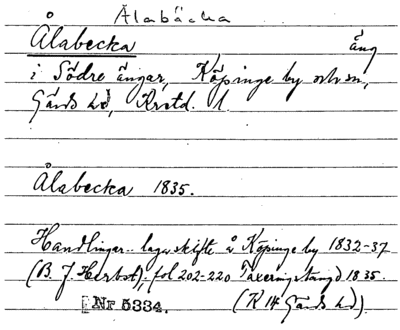 Ålabäcka
Ålabecka äng
i Södre ängar, Köpinge by och sn,
Gärds hd, Krstd. l.
Ålabecka 1835.
Handlingar.. laga skifte å Köpinge by 1832-37
(B. J. Herbst), fol 202-220 Taxeringslängd 1835.
Nr 5334. (K 14 Gärds hd).